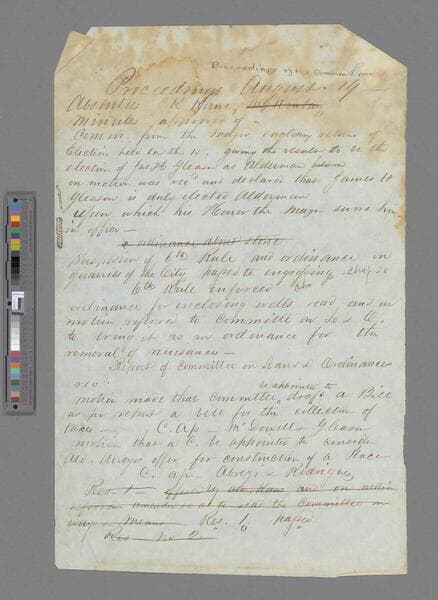 Proceedings of the Common Council
Proceedings August 19 —
Absentees K. Horne,
Minutes approved of —
Commu. from the Mayor enclosing returns of
Election held on the 12. giving the result to be the
election of Jas. H. Gleason as Alderman
on motion was rec and declared that James H
Gleason is duly elected Alderman
Upon which his Honor the Mayor swore him
in office —
& ordinance about stone
Suspension of 6th Rule and ordinance on
quarries of the City, passed to engrossing. chap. 20
6th Rule enforced
ordinance for enclosing wells read and on
motion referred to Committee on L & O.
to bring it as an ordinance for the
removal of nuisances —
Report of Committee on Laws & Ordinances
rec:
be appointed to
motion made that Committee draft a Bill
as per report a bill for the collection of
taxes — C. Ap — McDowell & Gleason
motion that a C. be appointed to consider
Ald. Abrego offer for construction of a Place
C. ap — Abrego & Rodrigues
Res. 1 — and on motion
read the Committee on
ways & means Res. 1, passed
Res No 2